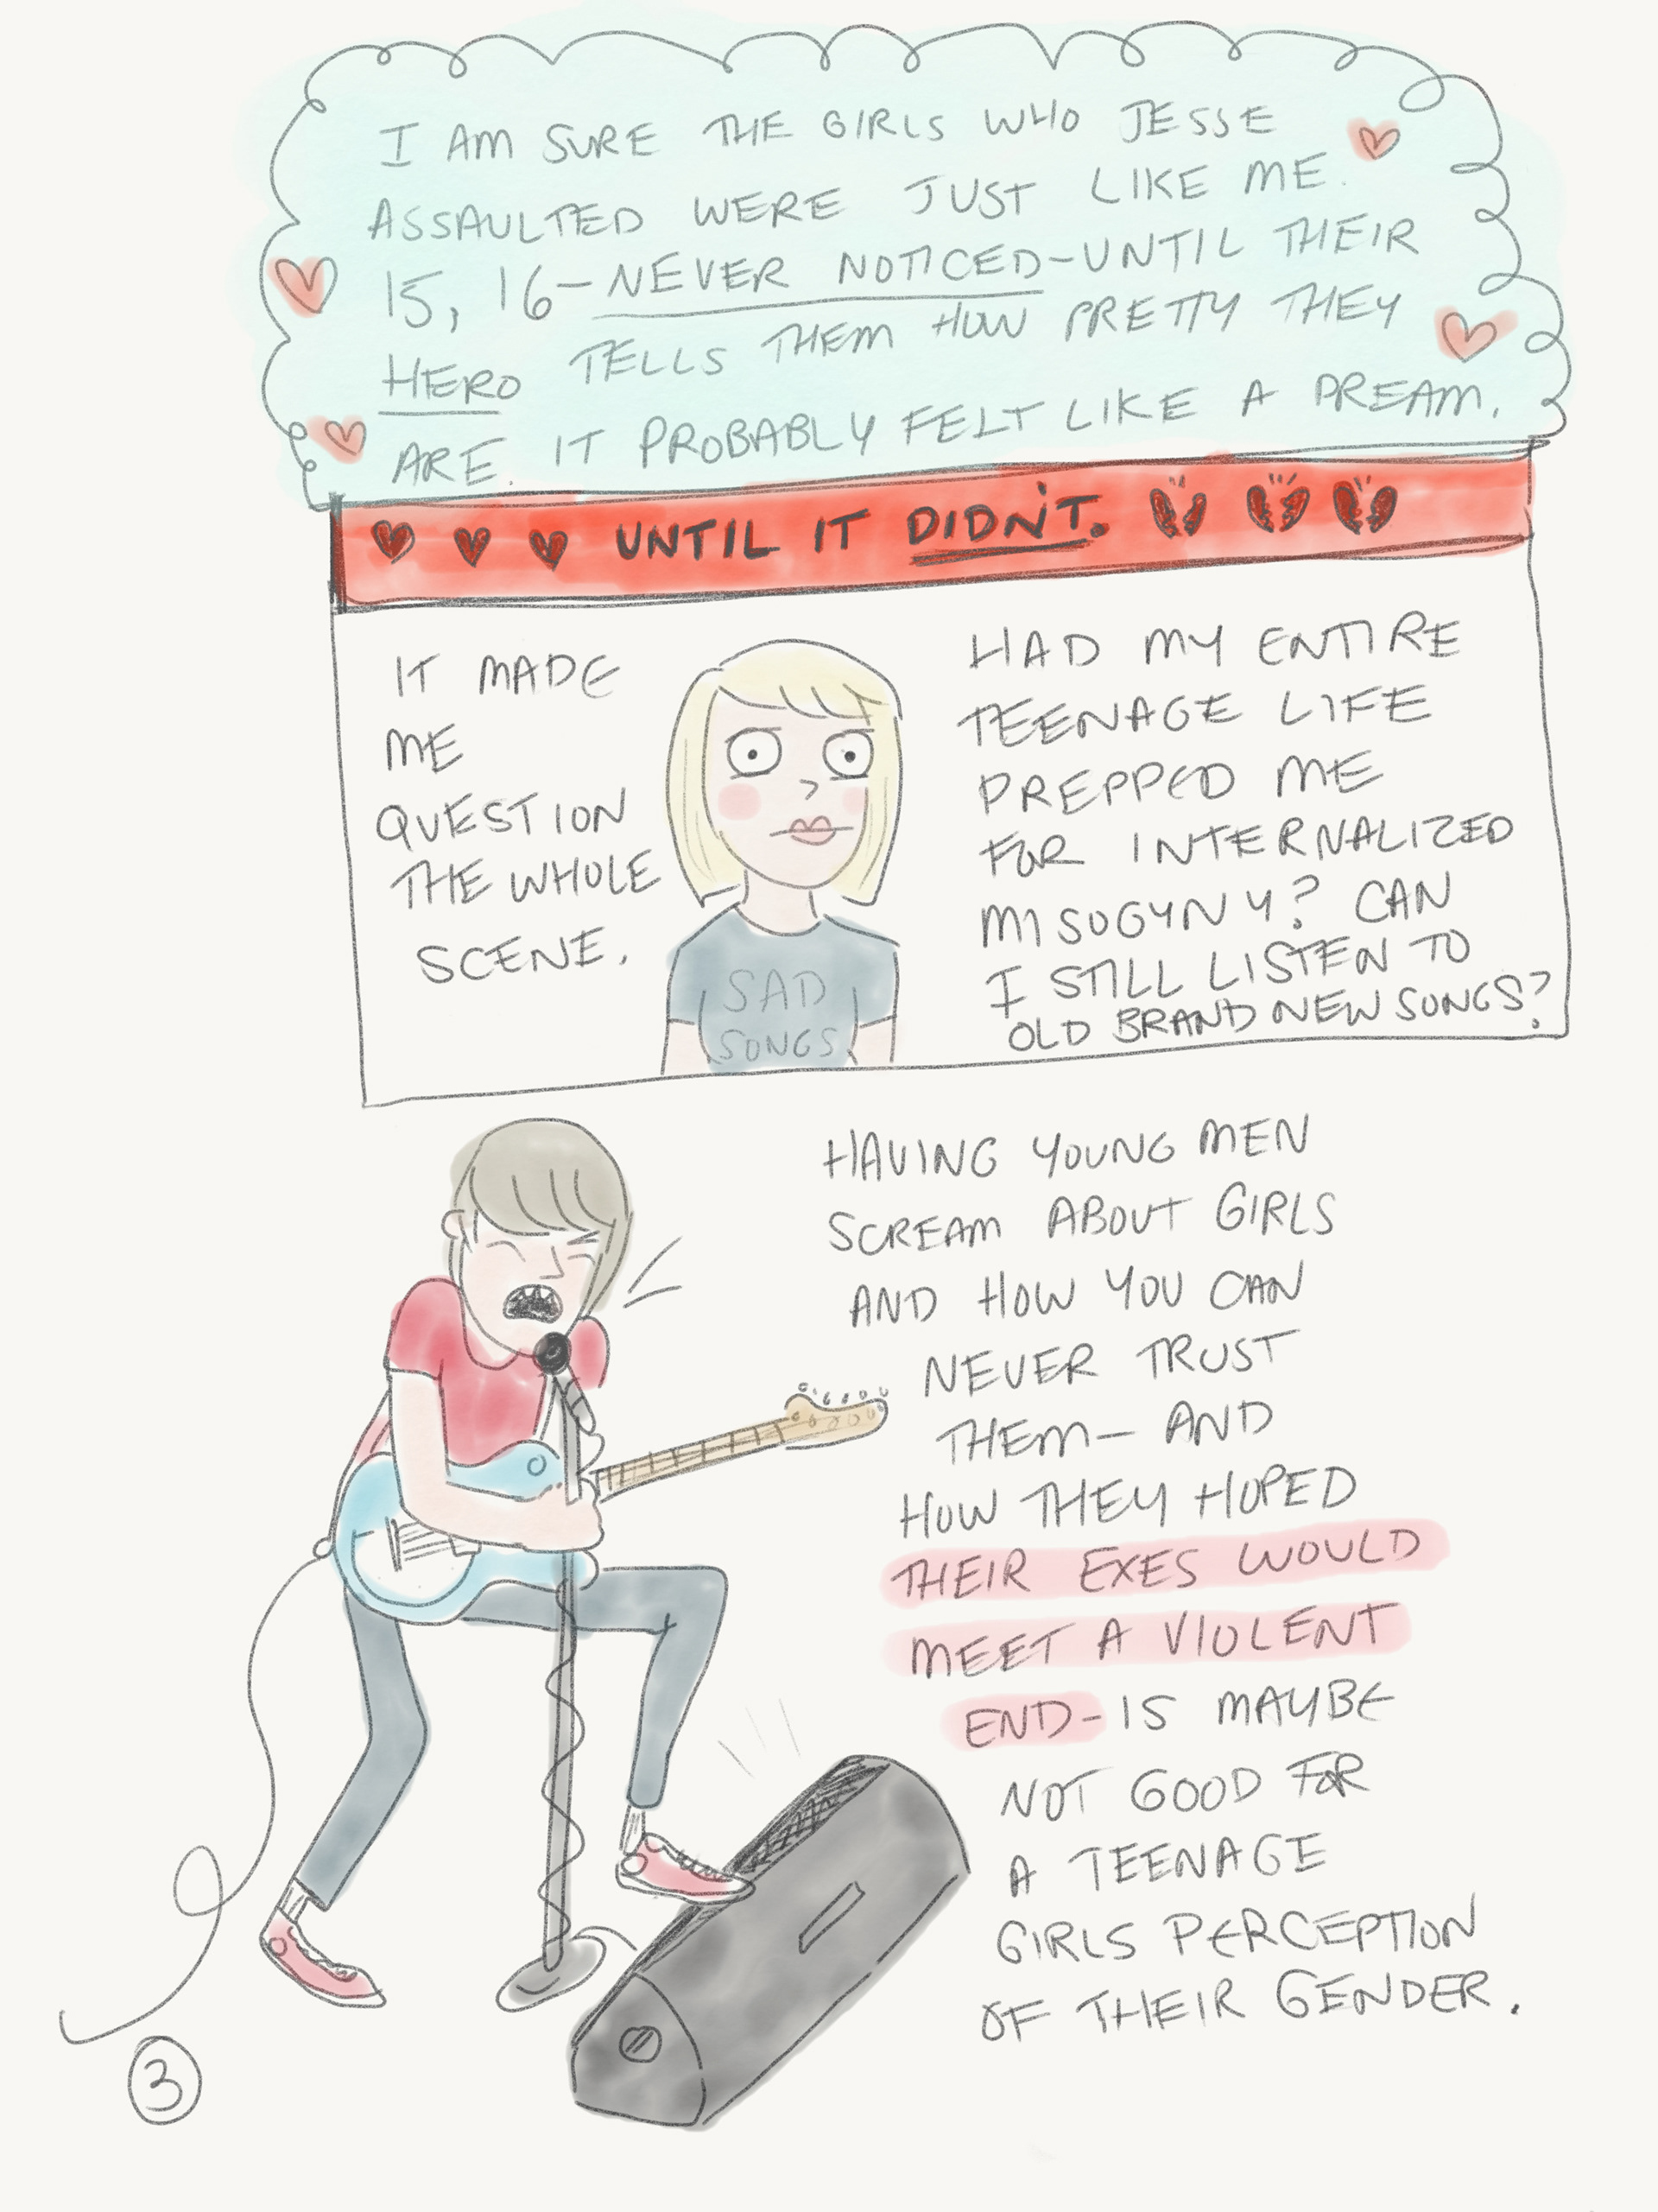 I AM SURE THE GIRLS WHO JESSE
ASSAULTED WERE JUST LIKE ME.
15, 16-NEVER NOTICED-UNTIL THEIR
HERO TELLS THEM HOW PRETTY THEY
ARE. IT PROBABLY FELT LIKE A DREAM.
UNTIL IT DIDN'T.
IT MADE
ME
QUESTION
THE WHOLE
SCENE.
SAD
SONGS
HAD MY ENTIRE
TEENAGE LIFE
PREPPED ME
FOR INTERNALIZED
MISOGYNY? CAN
I STILL LISTEN TO
OLD BRAND NEW SONGS?
HAVING YOUNG MEN
SCREAM ABOUT GIRLS
AND HOW YOU CAN
NEVER TRUST
THEM- AND
HOW THEY HOPED
THEIR EXES WOULD
MEET A VIOLENT
END- IS MAYBE
NOT GOOD FOR
A TEENAGE
GIRLS PERCEPTION
OF THEIR GENDER.
3